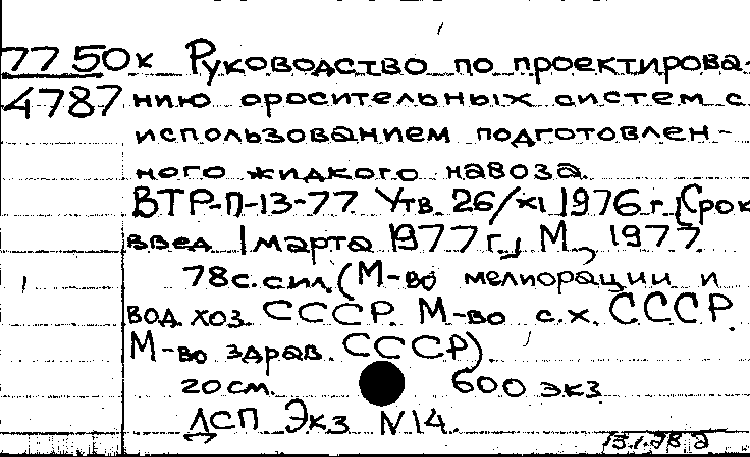 7750к Руководство по проектирова-
4787 нию оросительных систем с
использованием подготовлен-
ного жидкого навоза.
ВТР-П-13-77. Утв. 26/XI 1976 г. [Срок
введ 1 марта 1977 г.], М., 1977
78с. с ил. (М-во мелиорации и
вод. хоз. СССР. М-во с.х. СССР.
М-во здрав. СССР).
20см. 600 экз.
ЛСП Экз N14.
13.1.78